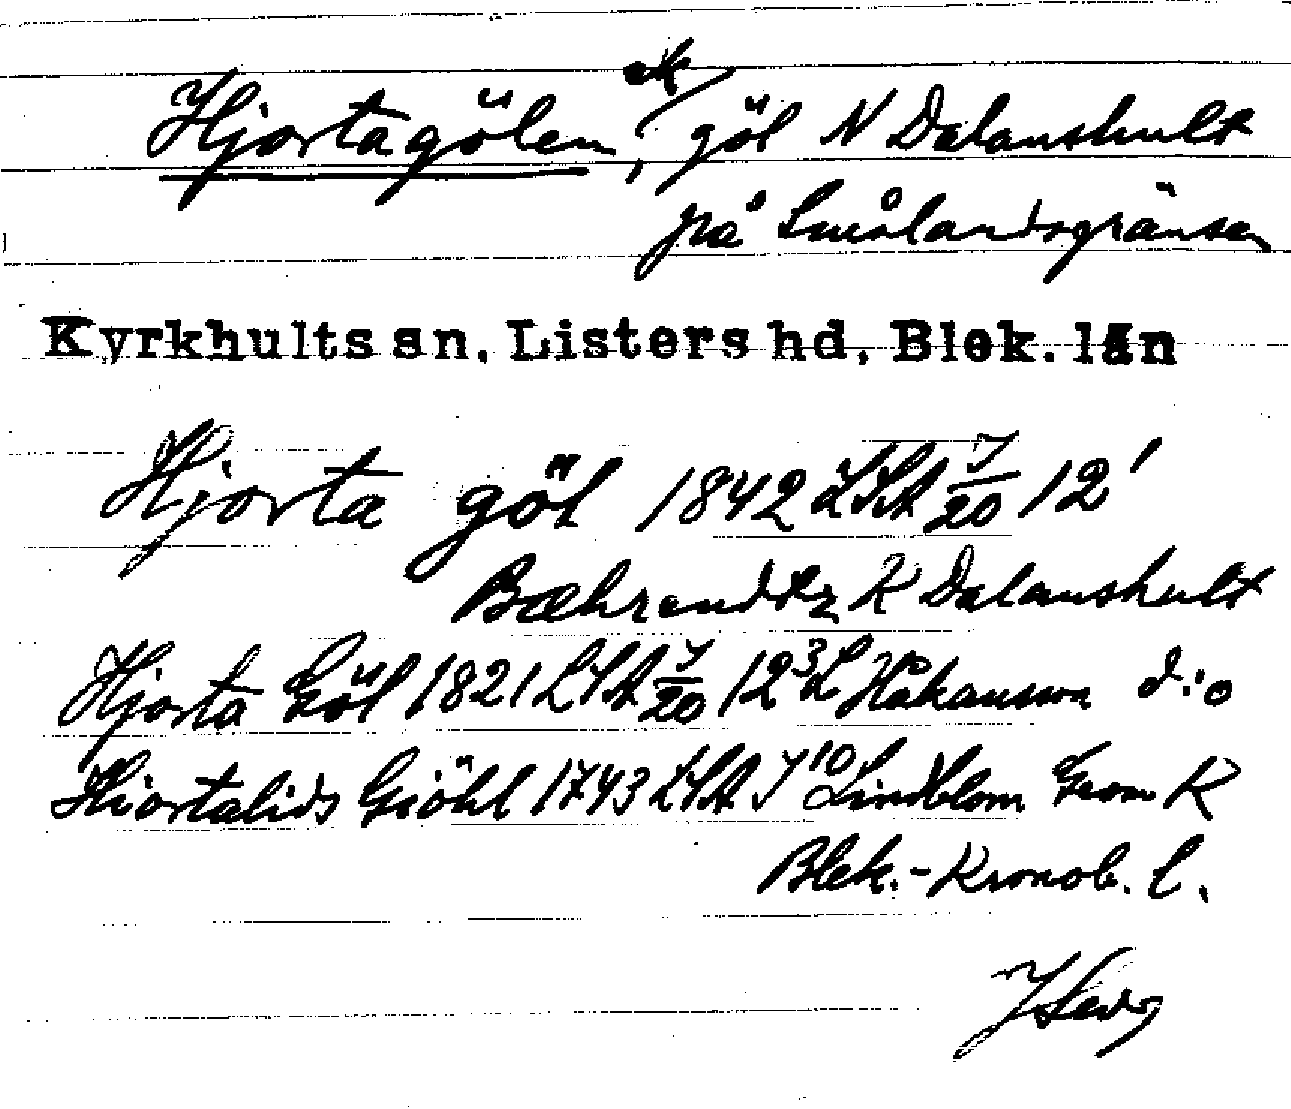 ek
Hjortagölen, göl N Dalanshult
på Smålandsgränsen
Kyrkhults sn, Listers hd, Blek. län
Hjorta göl 1842 LSA J/20 12'
Bæhrendtz K Dalanshult
Hjorta Göl 1821 LSA J/20 12³ L Håkansson d:o
Hiortalids Giöhl 1743 LSA J¹⁰ Lindblom Grom K
Blek.-Kronob. l.